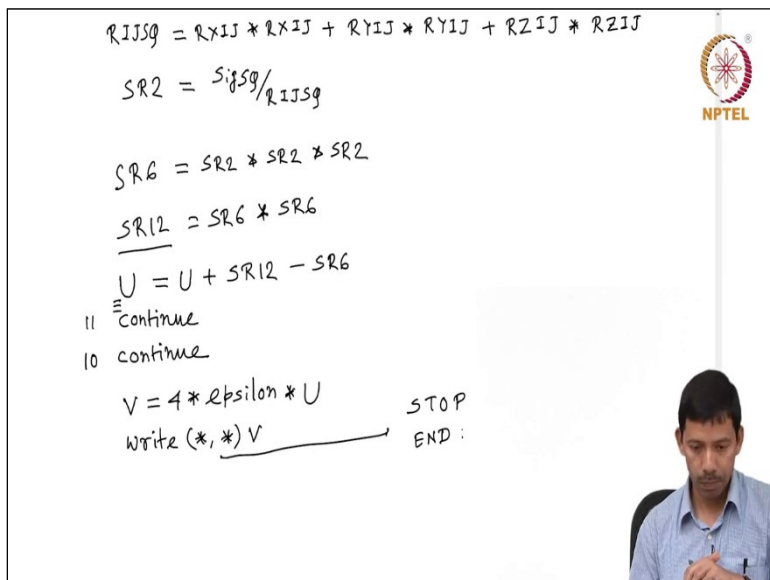 RIJSQ = RXIJ * RXIJ + RYIJ * RYIJ + RZIJ * RZIJ
SR2 = SigSQ/RIJSQ
SR6 = SR2 * SR2 * SR2
SR12 = SR6 * SR6
U = U + SR12 - SR6
11 continue
10 continue
V = 4 * epsilon * U
write (*, *) V
STOP
END :
®
NPTEL